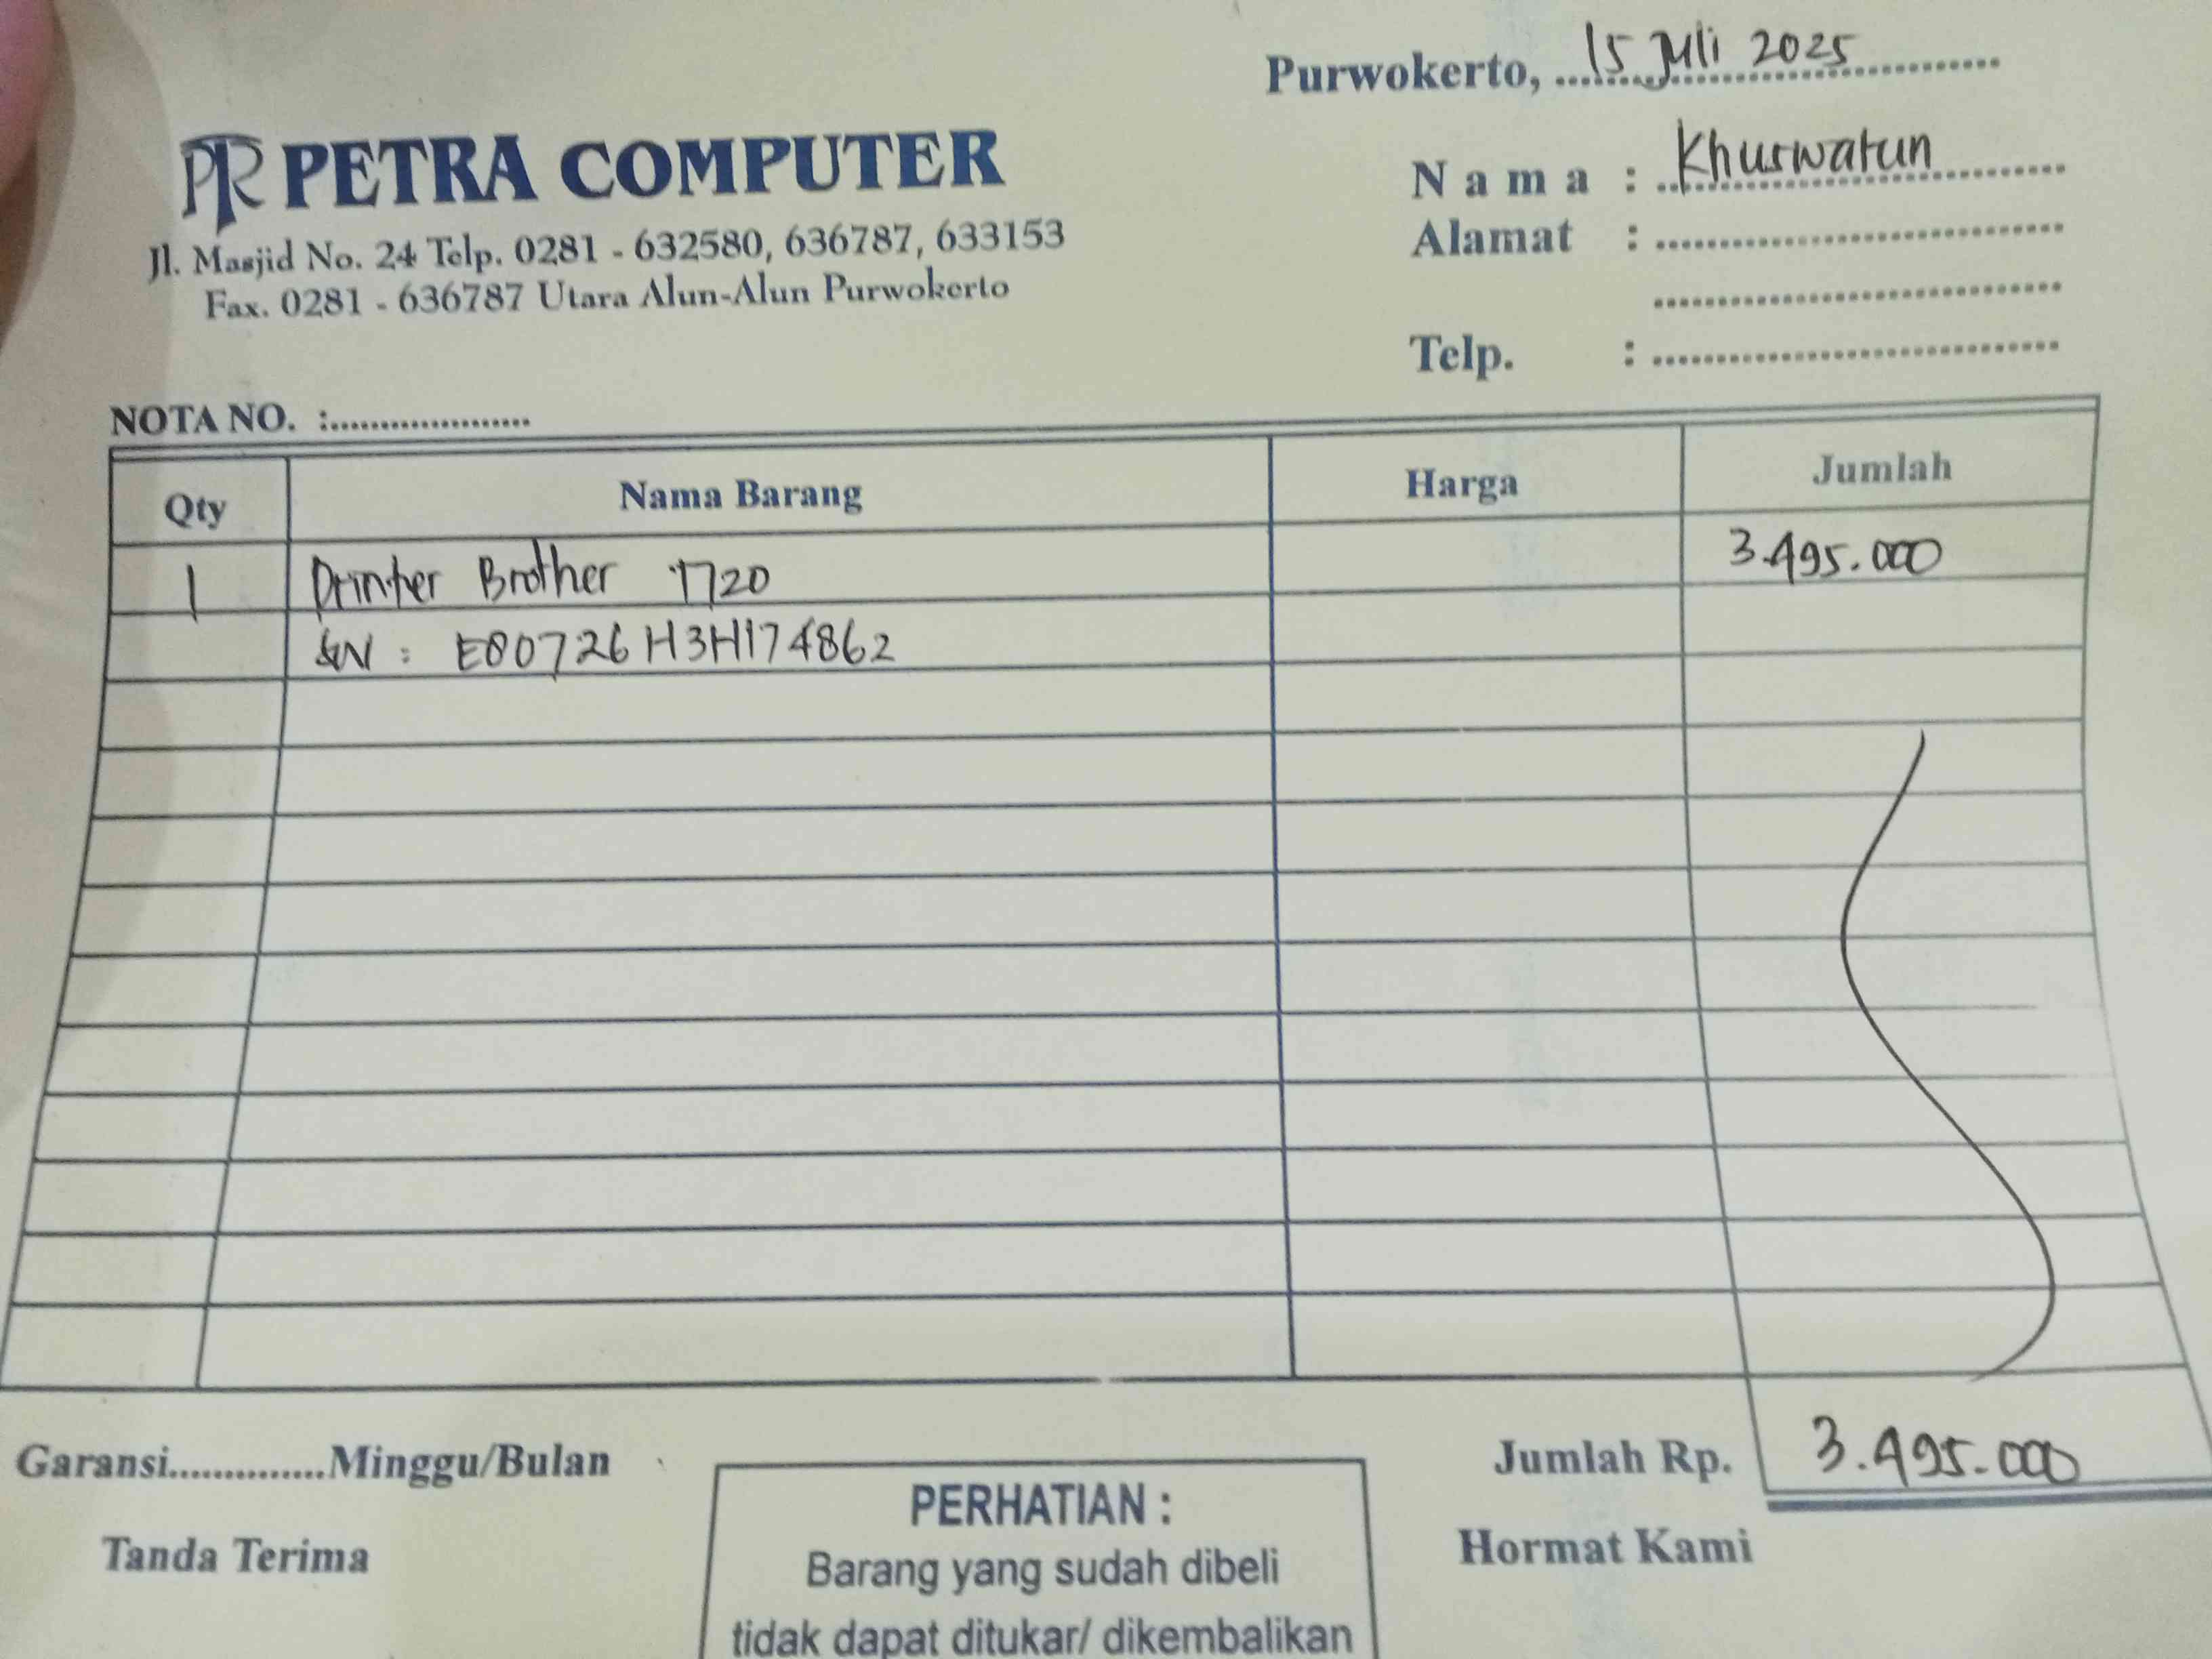 Purwokerto, 15 Juli 2025
PR PETRA COMPUTER
Jl. Masjid No. 24 Telp. 0281 - 632580, 636787, 633153
Fax. 0281 - 636787 Utara Alun-Alun Purwokerto
Nama : Khuswatun
Alamat :
Telp. :
NOTA NO. :
Qty Nama Barang Harga Jumlah
1 Printer Brother T720 3.495.000
SN : E80726H3H174862
Garansi..............Minggu/Bulan
Jumlah Rp. 3.495.000
Tanda Terima
Hormat Kami
PERHATIAN :
Barang yang sudah dibeli
tidak dapat ditukar/ dikembalikan